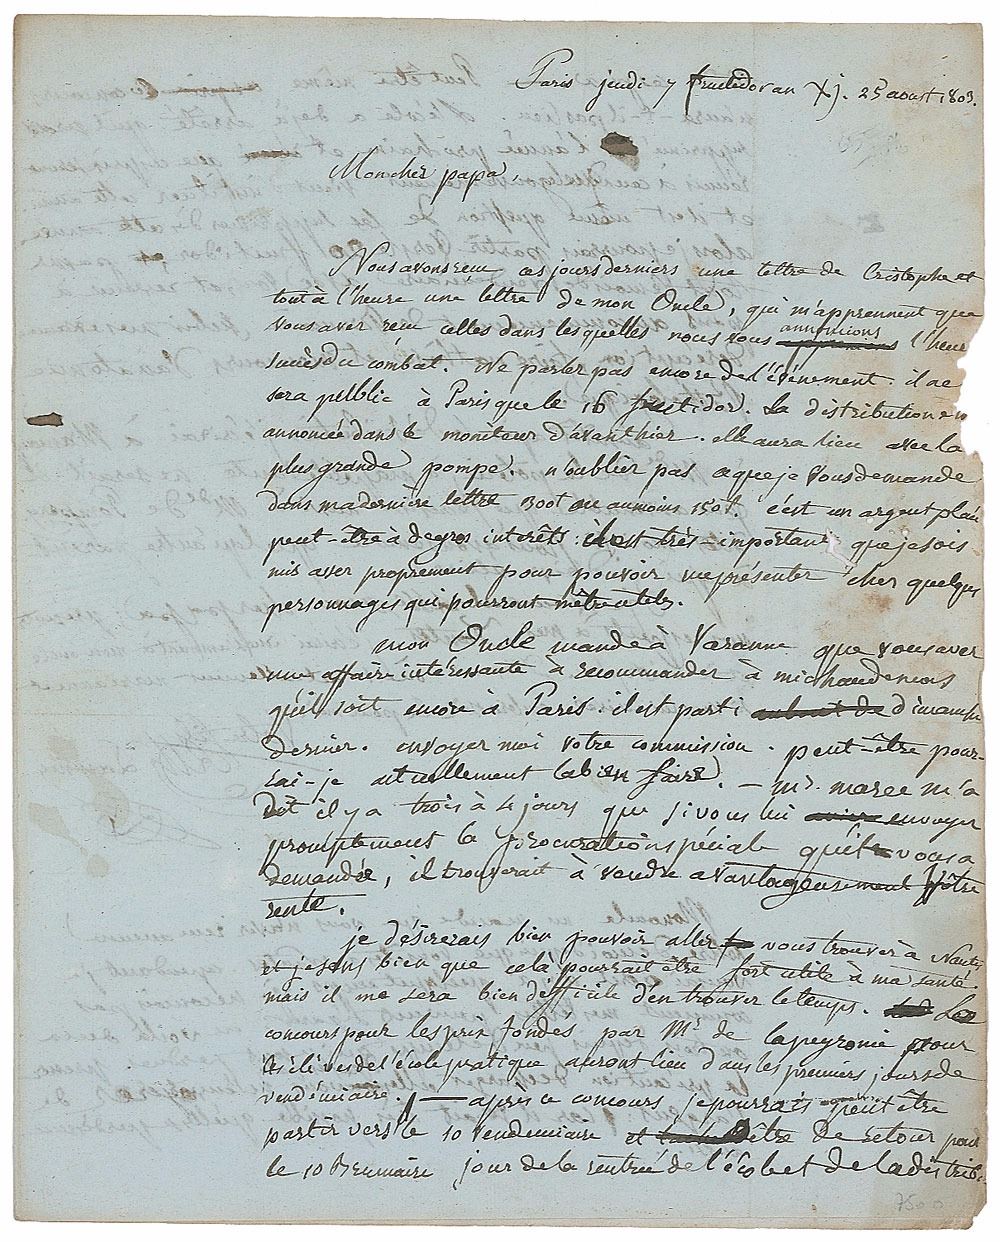 Paris jeudi 7 fructidor an XI. 25 aoust 1803.
Mon cher papa,
Nous avons reçu ces jours derniers une lettre de Cristophe et
tout à l'heure une lettre de mon Oncle, qui m'apprennent que
vous avez reçu celles dans lesquelles nous vous annoncions l'heur
succès du combat. Ne parlez pas encore de l'événement. il ne
sera publlic à Paris que le 16 fructidor. La distribution en
annoncée dans le moniteur d'avanthier. elle aura lieu avec la
plus grande pompe. n'oubliez pas ce que je vous demande
dans ma dernière lettre 300# ou aumoins 150#. c'est un argent placé
peut-être à de gros intérêts. il est très important que je sois
mis assez proprement pour pouvoir me présenter chez quelques
personnages qui pourront m'être utiles.
mon Oncle mande à Varanne que vous avez
une affaire intéressante à recommander à michaud mais
qu'il soit encore à Paris. il est parti dimanche
dernier. envoyez moi votre commission. peut-être pour-
rai-je actuellement la bien faire. — mr. marec m'a
dit il y a trois à 4 jours que si vous lui envoyez
promptement la procuration spéciale qu'il vous a
demandée, il trouverait à vendre avantageusement votre
rente.
je désirerais bien pouvoir aller vous trouver à Nantes
et je sens bien que celà pourrait être fort utile à ma santé.
mais il me sera bien difficile d'en trouver le temps. Les
concours pour les prix fondés par Mr. de lapeyronie pour
les élèves de l'école pratique auront lieu dans les premiers jours de
vendémiaire. — après ce concours je pourrais peut être
partir vers le 10 vendemiaire et être de retour pour
le 10 Brumaire jour de la rentrée de l'école et de la distrib
7500